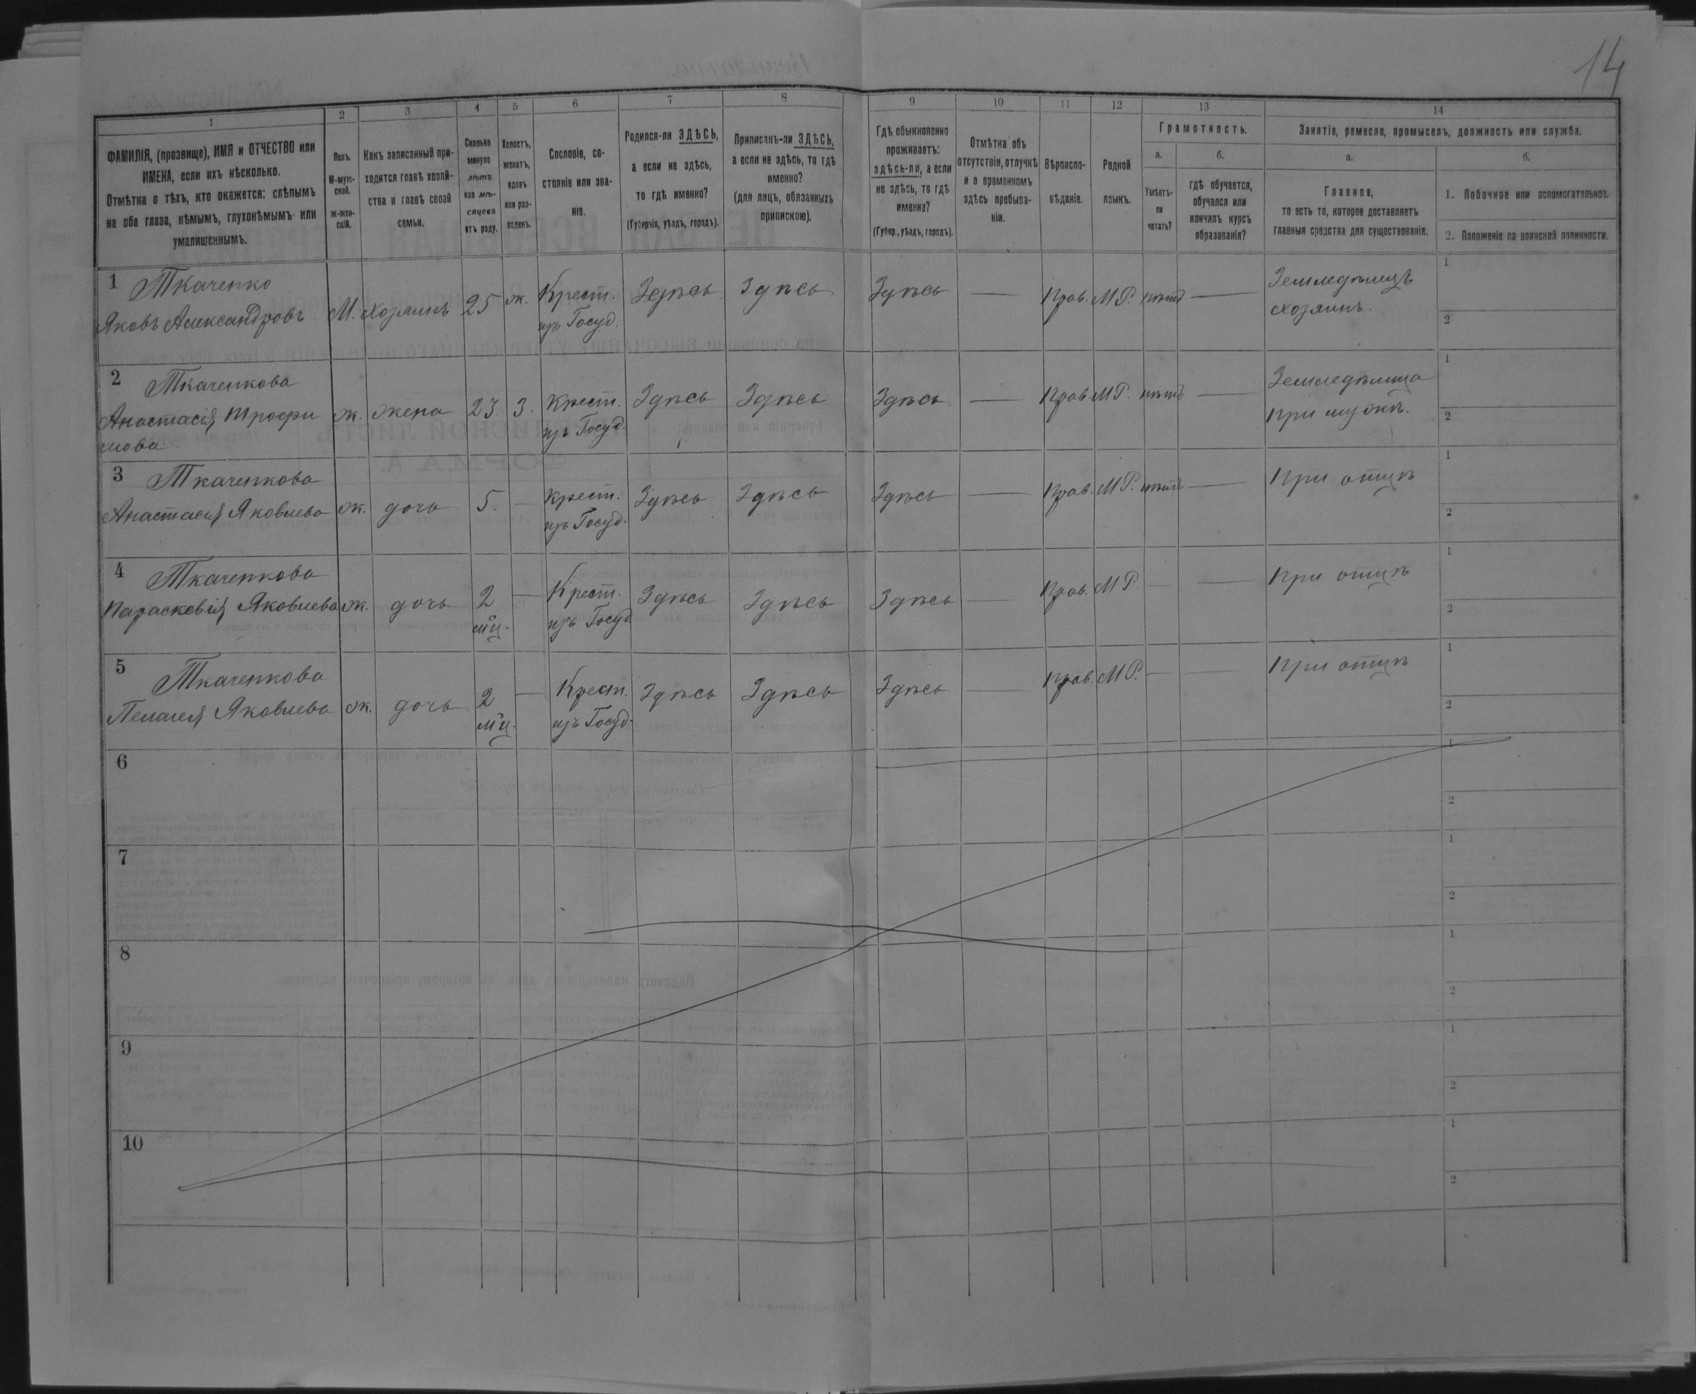 14
1
2
3
4
5
6
7
8
9
10
11
12
13
14
ФАМИЛІЯ, (прозвище), ИМЯ и ОТЧЕСТВО или
ИМЕНА, если ихъ нѣсколько.
Отмѣтка о тѣхъ, кто окажется: слѣпымъ
на оба глаза, нѣмымъ, глухонѣмымъ или
умалишеннымъ.
Полъ.
М-муж-
ской.
Ж-жен-
скій.
Какъ записанный при-
ходится главѣ хозяй-
ства и главѣ своей
семьи.
Сколько
минуло
лѣтъ
или мѣ-
сяцевъ
отъ роду.
Холостъ,
женатъ,
вдовъ
или раз-
веденъ.
Сословіе, со-
стояніе или зва-
ніе.
Родился-ли ЗДѢСЬ,
а если не здѣсь,
то гдѣ именно?
(Губернія, уѣздъ, городъ).
Приписанъ-ли ЗДѢСЬ,
а если не здѣсь, то гдѣ
именно?
(для лицъ, обязанныхъ
припискою).
Гдѣ обыкновенно
проживаетъ:
здѣсь-ли, а если
не здѣсь, то гдѣ
именно?
(Губер., уѣздъ, городъ).
Отмѣтка объ
отсутствіи, отлучкѣ
и о временномъ
здѣсь пребыва-
ніи.
Вѣроиспо-
вѣданіе.
Родной
языкъ.
Грамотность.
а.
б.
Умѣетъ-
ли
читать?
гдѣ обучается,
обучался или
кончилъ курсъ
образованія?
Занятіе, ремесло, промыселъ, должность или служба.
а.
б.
Главное,
то есть то, которое доставляетъ
главныя средства для существованія.
1. Побочное или вспомогательное.
2. Положеніе по воинской повинности.
1 Ткаченко
Яковъ Александровъ М. Хозяинъ 25 ж. Крест. Здѣсь Здѣсь Здѣсь — Прав. М.Р. нѣтъ — Земледѣлецъ 1
изъ Госуд. хозяинъ. 2
2 Ткаченкова
Анастасія Трофи ж. жена 23. З. Крест. Здѣсь Здѣсь Здѣсь — Прав. М.Р. нѣтъ — Земледѣлица 1
мова изъ Госуд. при мужѣ. 2
3 Ткаченкова
Анастасія Яковлева ж. дочь 5. — Крест. Здѣсь Здѣсь Здѣсь — Прав. М.Р. нѣтъ — При отцѣ 1
изъ Госуд. 2
4 Ткаченкова
Параскевія Яковлева ж. дочь 2 — Крест. Здѣсь Здѣсь Здѣсь — Прав. М.Р. — — При отцѣ 1
мц. изъ Госуд 2
5 Ткаченкова
Пелагея Яковлева ж. дочь 2 — Крест. Здѣсь Здѣсь Здѣсь — Прав. М.Р. — — При отцѣ 1
мц. изъ Госуд. 2
6 1
2
7 1
2
8 1
2
9 1
2
10 1
2